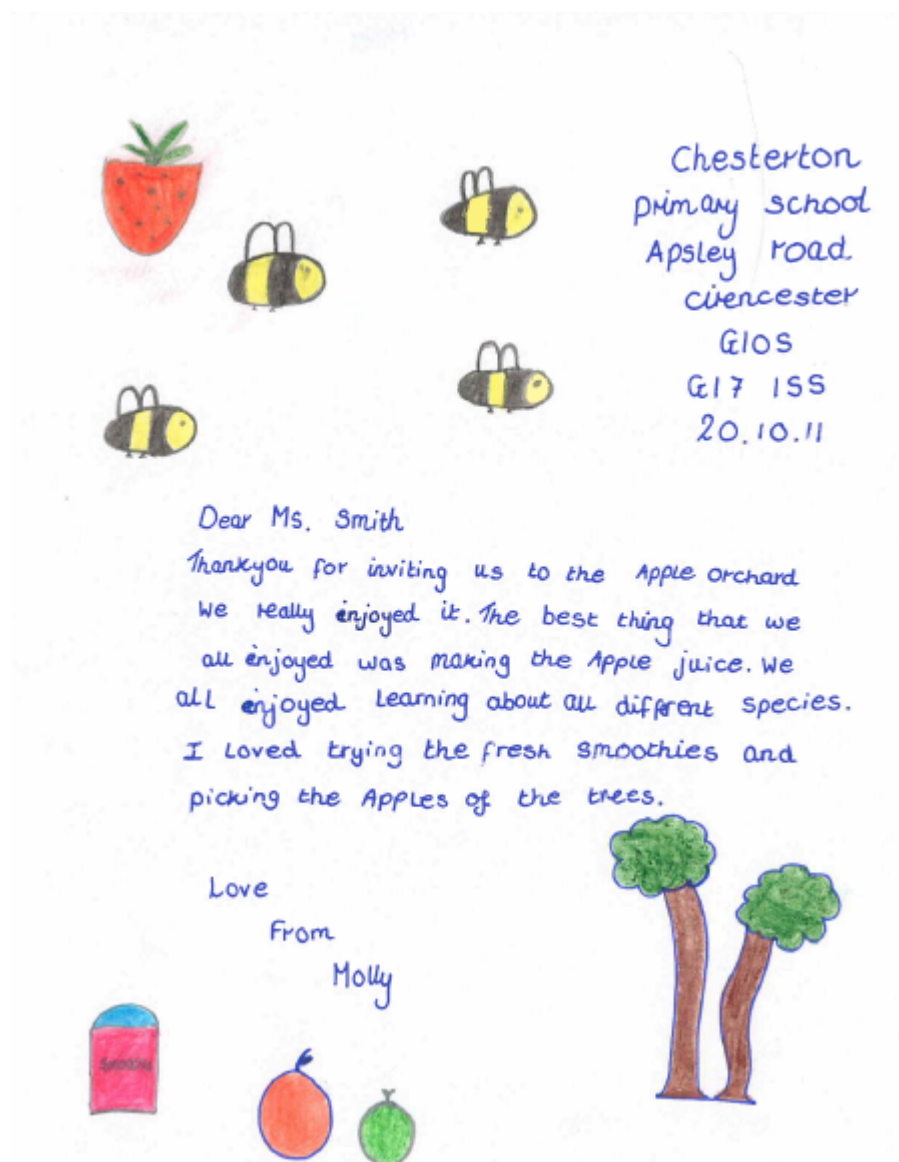 Chesterton
primary school
Apsley road
cirencester
GlOS
Gl7 1SS
20.10.11
Dear Ms. Smith
Thankyou for inviting us to the Apple orchard
We really enjoyed it. The best thing that we
all enjoyed was making the Apple juice. We
all enjoyed Learning about all different species.
I Loved trying the fresh smoothies and
picking the Apples of the trees.
Love
From
Molly
Smoothie